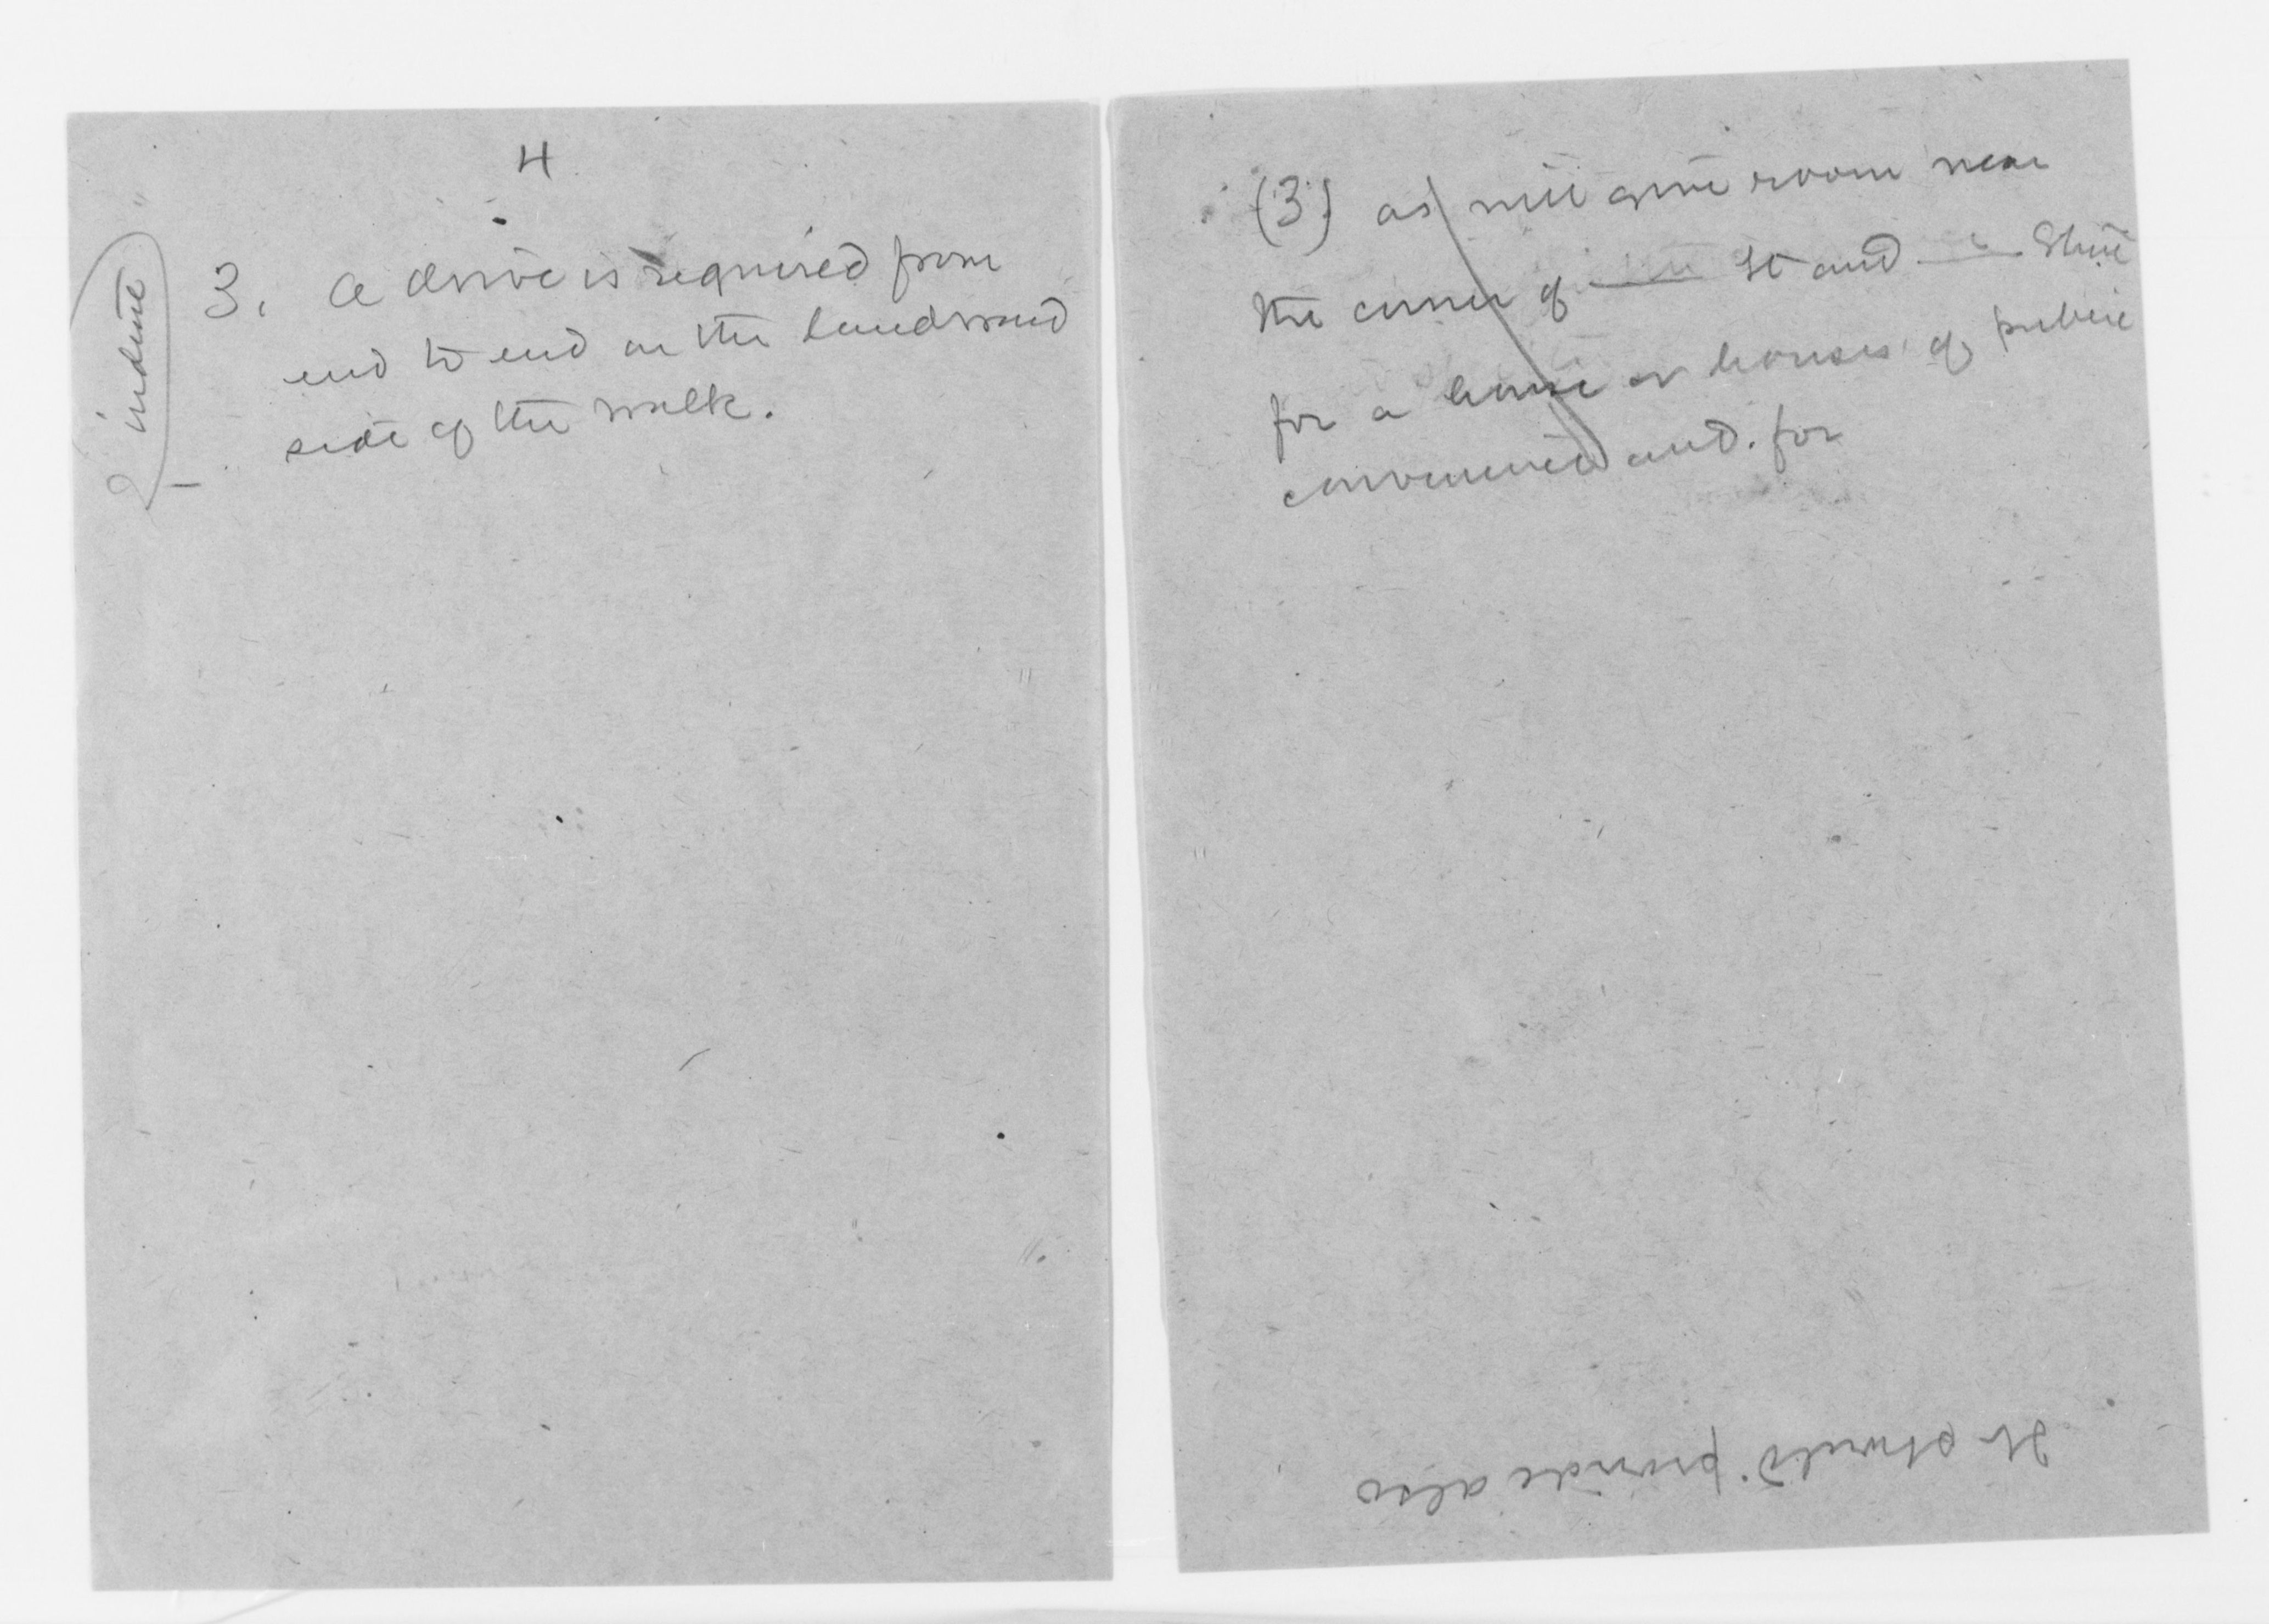 4
indent
3. A drive is required from
end to end on the landward
side of the walk.
(3) as will give room near
the corner of —— St and —— Street
for a house or houses of public
convenience and. for
It should provide also